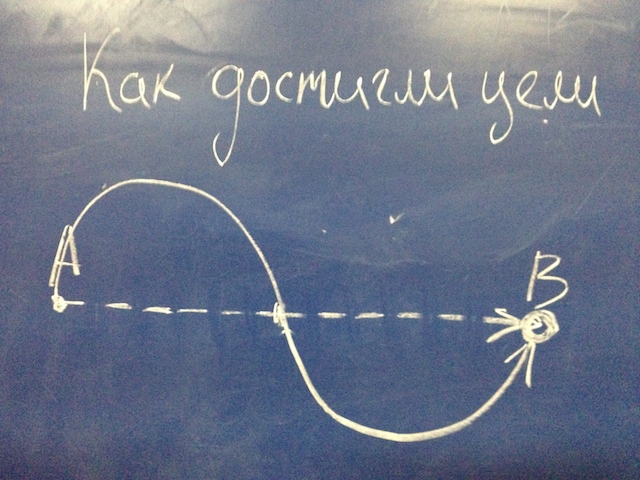 Как достигли цели
A
B